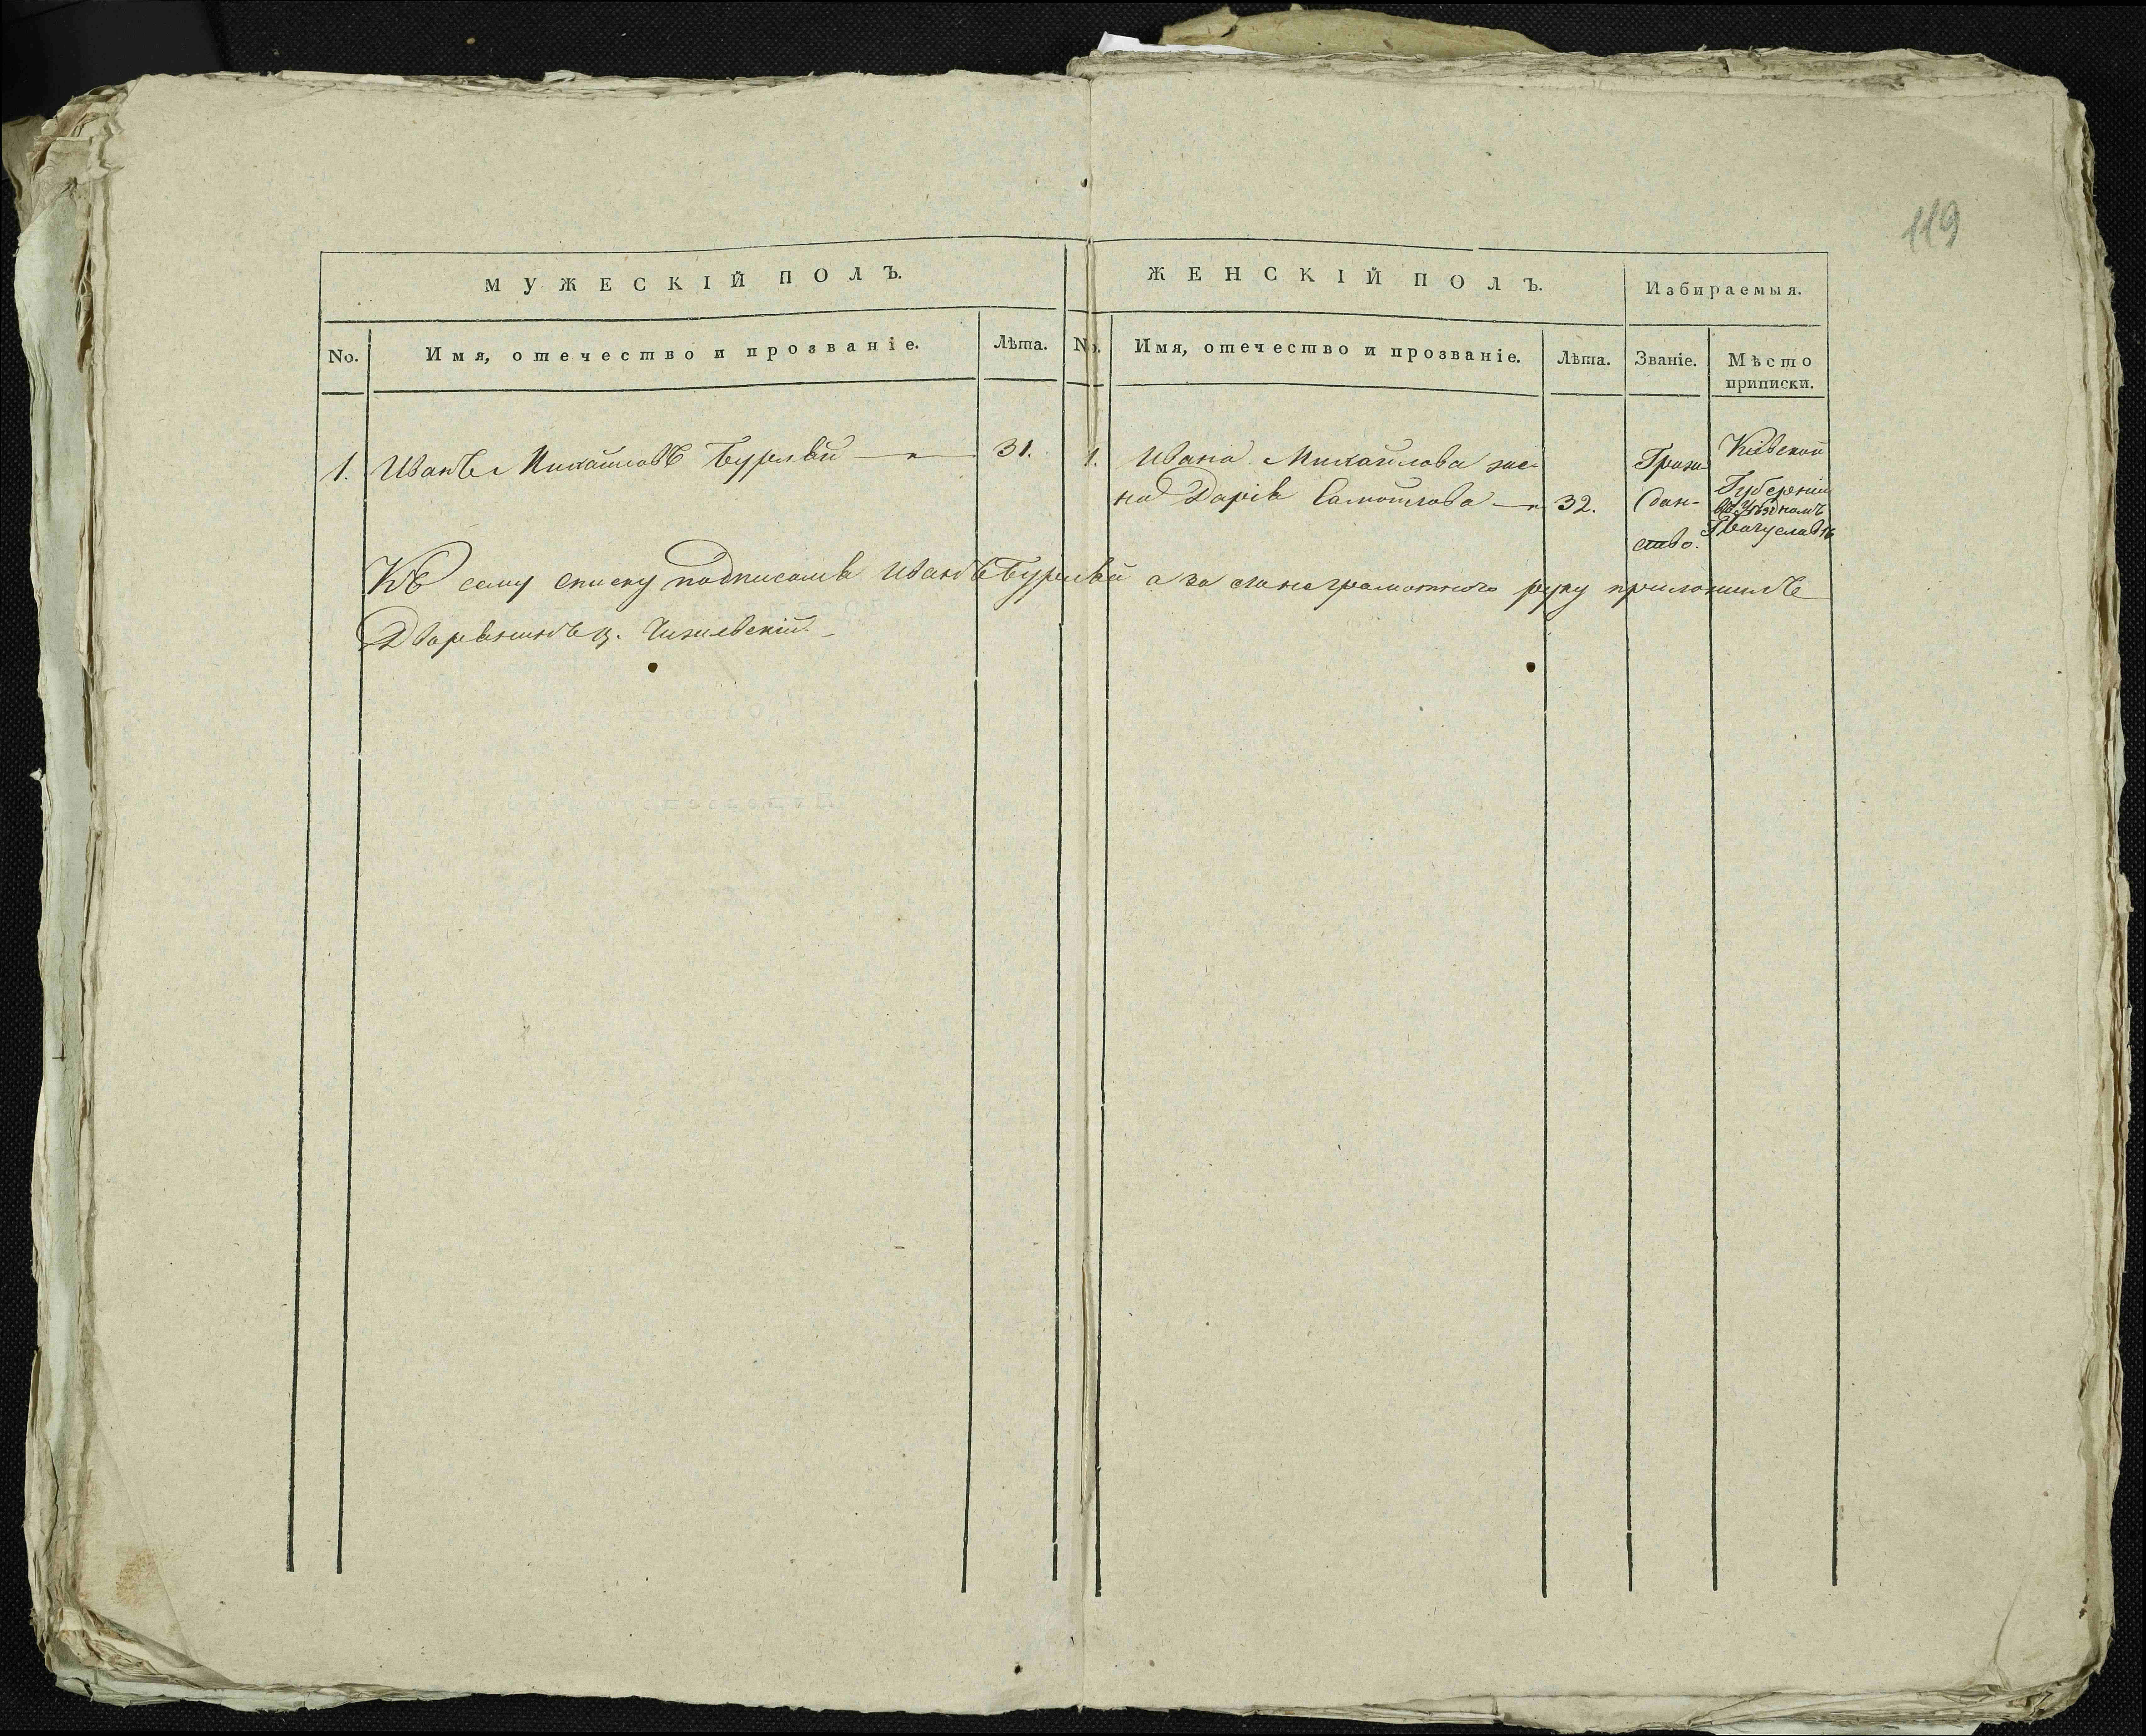 119
МУЖЕСКІЙ ПОЛЪ.
ЖЕНСКІЙ ПОЛЪ.
Избираемыя.
No.
Имя, отечество и прозваніе.
Лѣта.
No.
Имя, отечество и прозваніе.
Лѣта.
Званіе.
Мѣсто
приписки.
1. Иванъ Михайловъ Бурлай 31.
1. Ивана Михайлова же-
на Дарія Самойлова 32.
Граж-
дан-
ство.
Кіевской
Губерніи
въ уѣздномъ
Г Богуславѣ
Къ сему списку подписался Иванъ Бурлай а за его неграмотного руку приложилъ
Дворянинъ